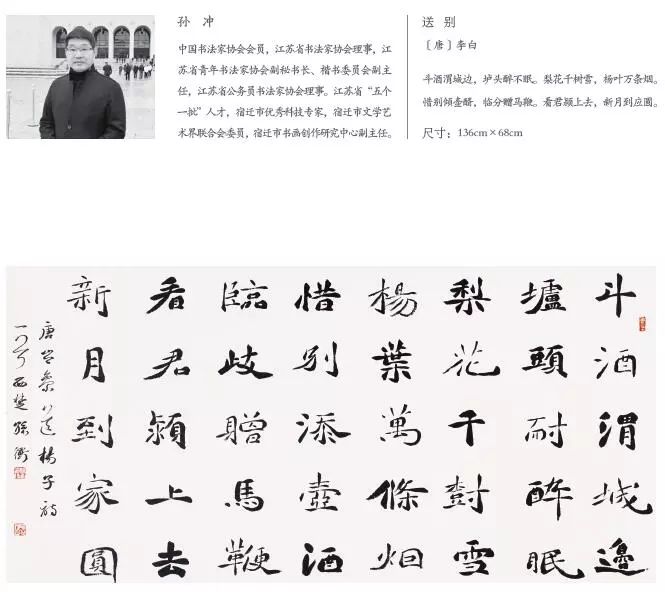 孙 冲
中国书法家协会会员，江苏省书法家协会理事，江
苏省青年书法家协会副秘书长、楷书委员会副主
任，江苏省公务员书法家协会理事。江苏省“五个
一批”人才，宿迁市优秀科技专家，宿迁市文学艺
术界联合会委员，宿迁市书画创作研究中心副主任。
送 别
〔唐〕李白
斗酒渭城边，垆头醉不眠。梨花千树雪，杨叶万条烟。
惜别倾壶醑，临分赠马鞭。看君颍上去，新月到应圆。
尺寸：136cm×68cm
斗酒渭城邊
壚頭耐醉眠
梨花千對雪
楊葉萬條烟
惜別添壺酒
臨歧贈馬鞭
看君潁上去
新月到家圓
唐岑參送楊子詩
西楚孫衝